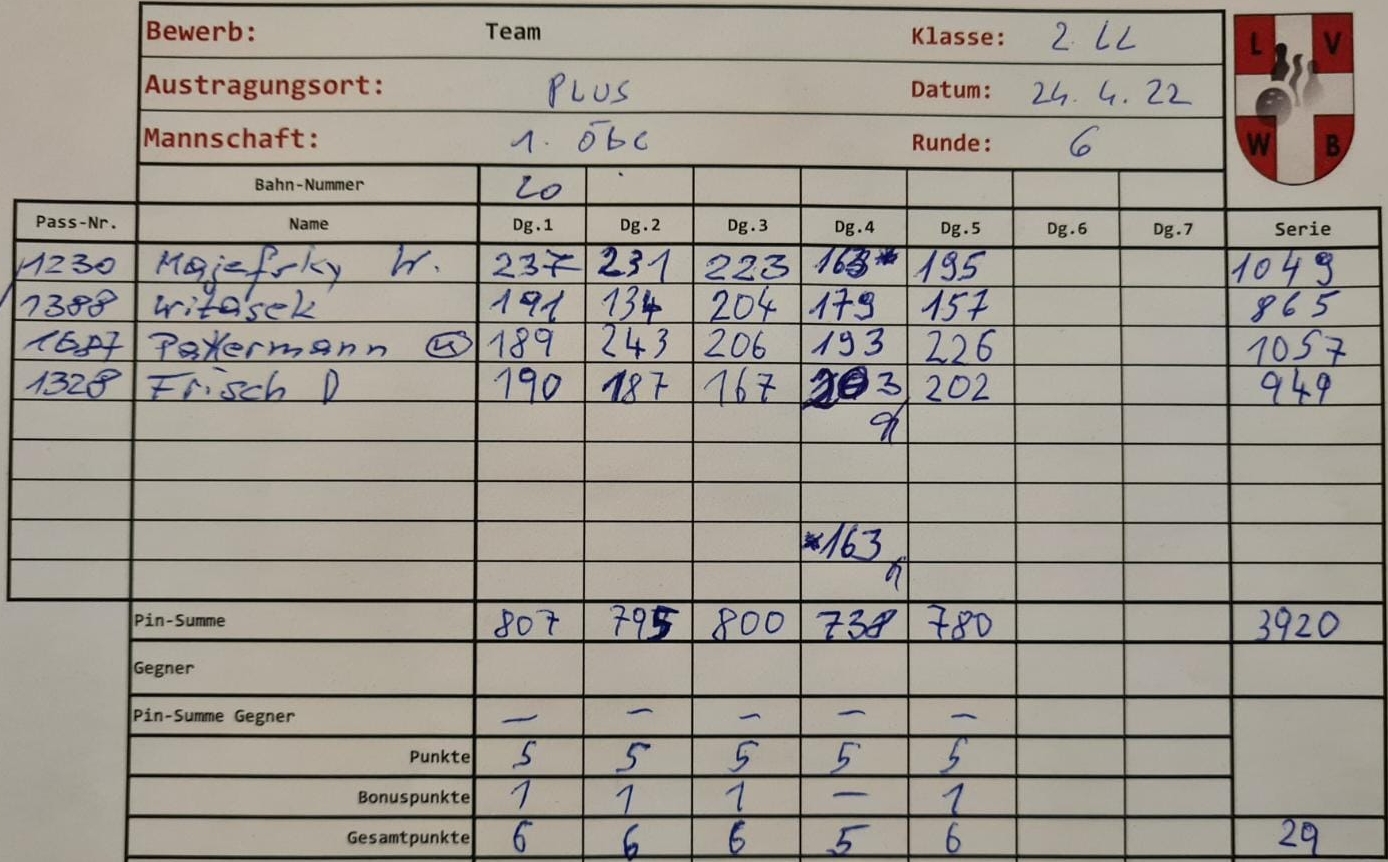 Bewerb: Team Klasse: 2. LL
L V
Austragungsort: PLUS Datum: 24. 4. 22
Mannschaft: 1. ÖBC Runde: 6
W B
Bahn-Nummer 20
Pass-Nr. Name Dg.1 Dg.2 Dg.3 Dg.4 Dg.5 Dg.6 Dg.7 Serie
1230 Majefsky W. 237 231 223 163* 195 1049
1388 Witasek 191 134 204 179 157 865
1687 Pattermann 189 243 206 193 226 1057
1328 Frisch D 190 187 167 203 202 949
*163
Pin-Summe 807 795 800 738 780 3920
Gegner
Pin-Summe Gegner – – – – –
Punkte 5 5 5 5 5
Bonuspunkte 1 1 1 – 1
Gesamtpunkte 6 6 6 5 6 29